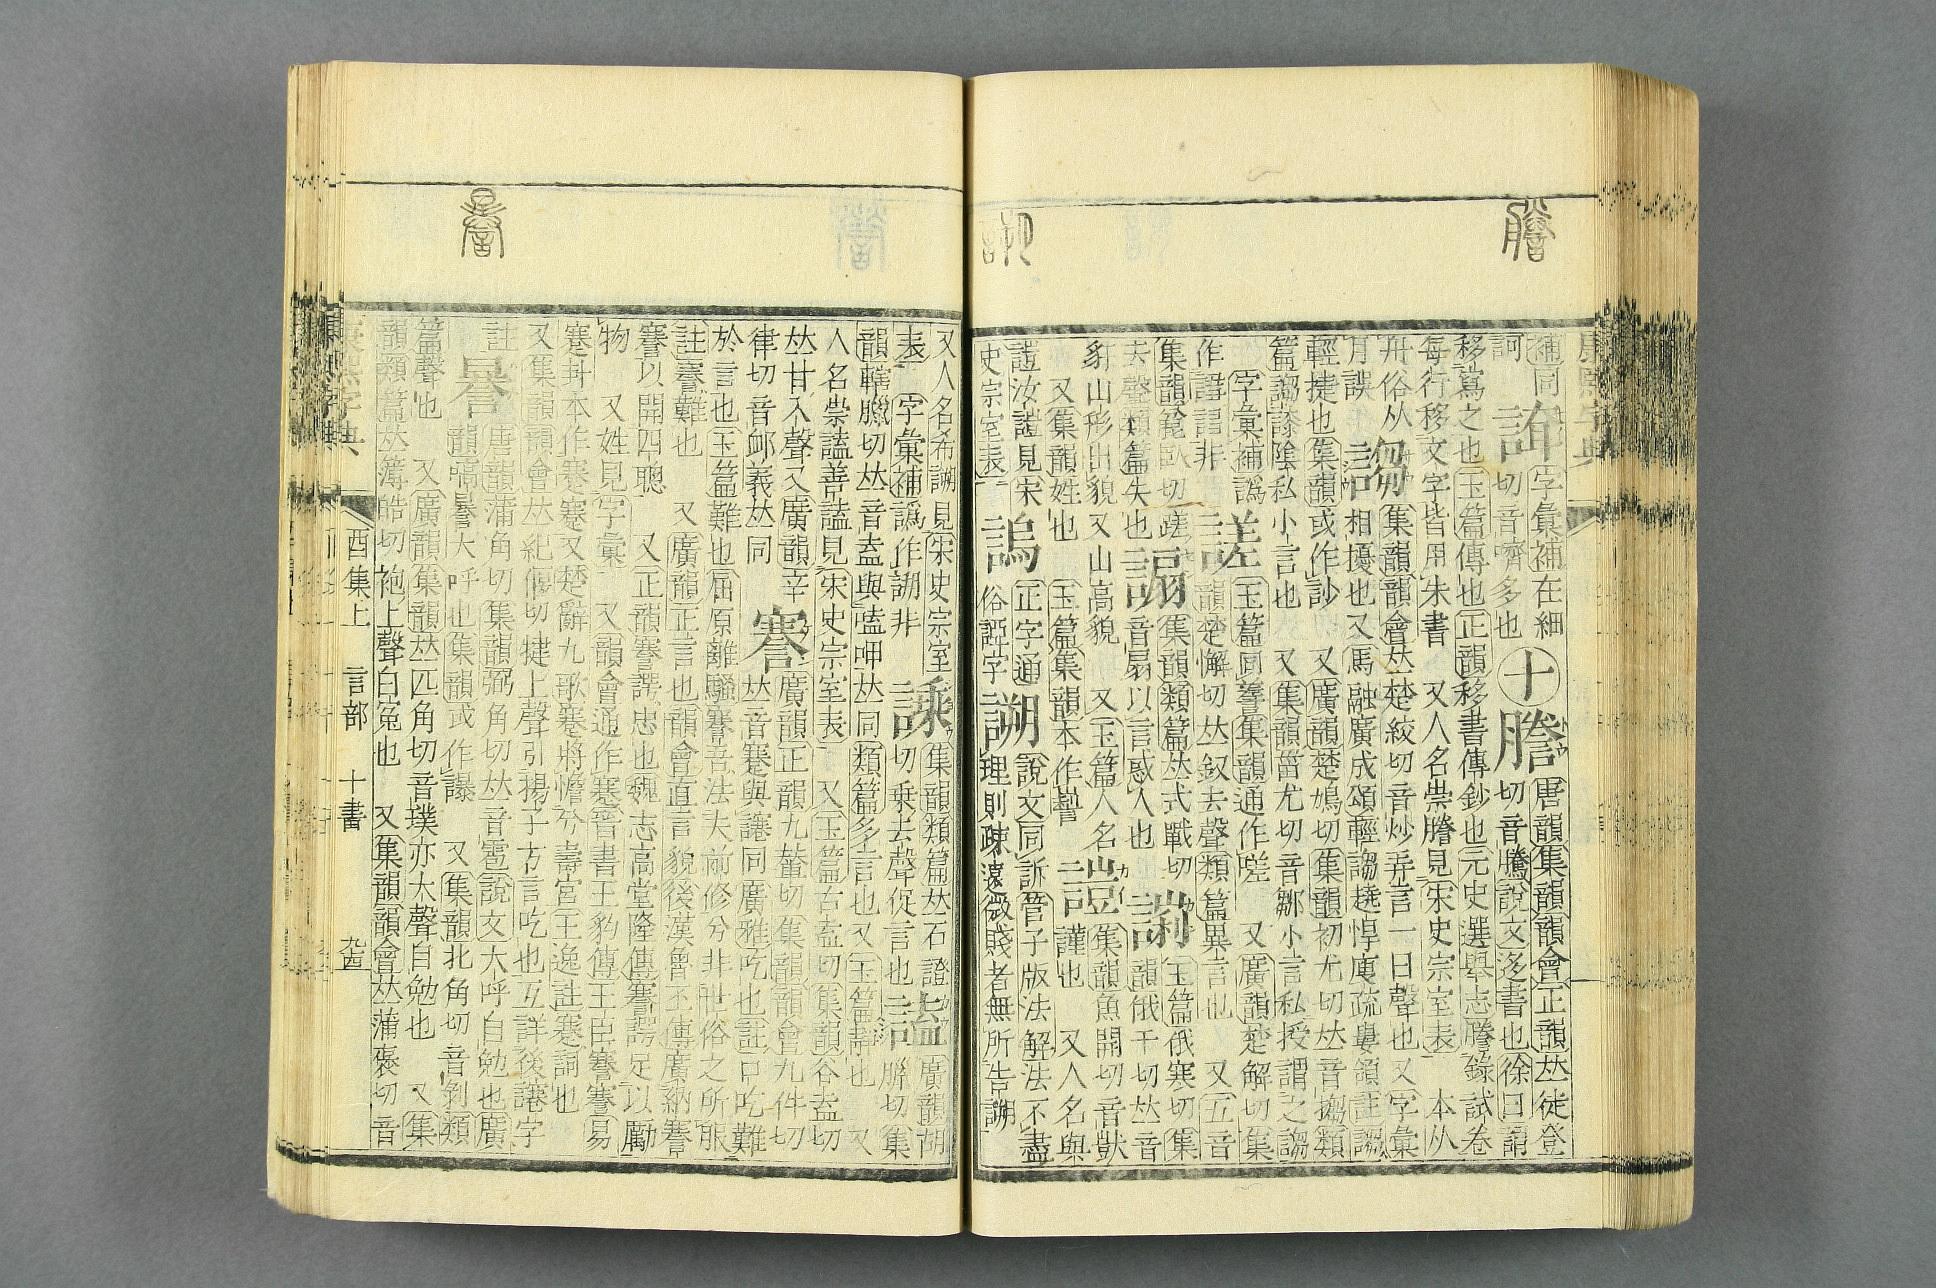 補同 字彙補在細 十 謄 唐韻集韻韻會正韻𠀤徒登
訶 切音嚌多也 切音騰說文迻書也徐曰謂
移寫之也玉篇傳也正韻移書傳鈔也元史選舉志謄錄試卷
每行移文字皆用朱書 又人名崇謄見宋史宗室表 本从
舟俗从 謅 集韻韻會𠀤楚絞切音炒弄言一曰聲也又字彙
月誤 相擾也又馬融廣成頌輕謅趬悍廋疏婁領註謅
輕捷也集韻或作訬 又廣韻楚鳩切集韻初尤切𠀤音搊類
篇謅誜陰私小言也 又集韻甾尤切音鄒小言私授謂之謅
字彙補譌 謎 玉篇同 集韻通作嗟 又廣韻楚解切集
作 非 韻楚懈切𠀤釵去聲類篇異言也 又五音
集韻 臥切蹉 謆 集韻類篇𠀤式戰切 玉篇俄寒切集
去聲類篇失也 音扇以言惑人也 韻俄干切𠀤音
豻山形出貌又山高貌 又玉篇人名 集韻魚開切音獃
又集韻姓也 玉篇集韻本作 謹也 又人名與
汝 見宋 正字通 說文同訴管子版法解法不盡
史宗室表 俗 字 理則疎遠微賤者無所告
又人名希 見宋史宗室 集韻類篇𠀤石證 廣韻胡
表 字彙補譌作 非 切乗去聲促言也 臘切集
韻轄臘切𠀤音盍與嗑呷𠀤同類篇多言也又玉篇靜也 又
人名崇 善 見宋史宗室表 又玉篇古盍切集韻谷盍切
𠀤甘入聲又廣韻 謇 廣韻正韻九輦切集韻韻會九件切
律切音卹義𠀤同 𠀤音蹇與讓同廣雅吃也註口吃難
於言也玉篇難也屈原離騷謇吾法夫前修兮非世俗之所服
註謇難也 又廣韻正言也韻會直言貌後漢魯丕傳廣納謇
謇以開四聰 又正韻謇諤忠也魏志高堂隆傳謇諤足以勵
物 又姓見字彙 又韻會通作蹇晉書王豹傳王臣謇謇易
蹇卦本作蹇蹇又楚辭九歌蹇將憺兮壽宮王逸註蹇詞也
又集韻韻會𠀤紀偃切犍上聲引揚子方言吃也互詳後讓字
註 謈 唐韻蒲角切集韻弼角切𠀤音雹說文大呼自勉也廣
韻嗃謈大呼也集韻或作謤 又集韻北角切音剝類
篇聲也 又廣韻集韻𠀤匹角切音璞亦大聲自勉也 又集
韻類篇𠀤簿皓切袍上聲白冤也 又集韻韻會𠀤蒲褒切音
康熙字典
酉集上 言部 十畫